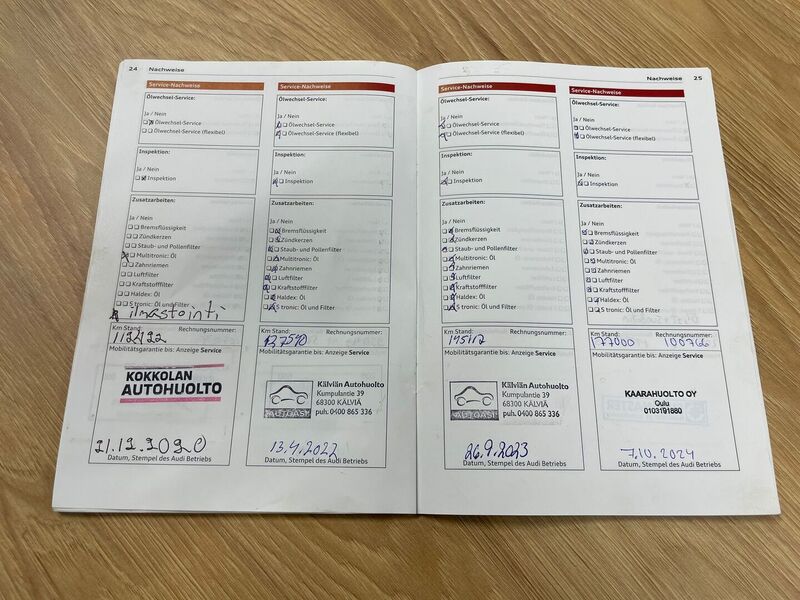 24 Nachweise
Service-Nachweise
Ölwechsel-Service:
Ja / Nein
Ölwechsel-Service
Ölwechsel-Service (flexibel)
Inspektion:
Ja / Nein
Inspektion
Zusatzarbeiten:
Ja / Nein
Bremsflüssigkeit
Zündkerzen
Staub- und Pollenfilter
Multitronic: Öl
Zahnriemen
Luftfilter
Kraftstofffilter
Haldex: Öl
S tronic: Öl und Filter
ilmastointi
Km Stand: Rechnungsnummer:
Mobilitätsgarantie bis: Anzeige Service
KOKKOLAN
AUTOHUOLTO
21.12.2020
Datum, Stempel des Audi Betriebs
Service-Nachweise
Ölwechsel-Service:
Ja / Nein
Ölwechsel-Service
Ölwechsel-Service (flexibel)
Inspektion:
Ja / Nein
Inspektion
Zusatzarbeiten:
Ja / Nein
Bremsflüssigkeit
Zündkerzen
Staub- und Pollenfilter
Multitronic: Öl
Zahnriemen
Luftfilter
Kraftstofffilter
Haldex: Öl
S tronic: Öl und Filter
Km Stand: Rechnungsnummer:
Mobilitätsgarantie bis: Anzeige Service
AUTOASI
Kälviän Autohuolto
Kumpulantie 39
68300 KÄLVIÄ
puh. 0400 865 336
13.4.2022
Datum, Stempel des Audi Betriebs
Nachweise 25
Service-Nachweise
Ölwechsel-Service:
Ja / Nein
Ölwechsel-Service
Ölwechsel-Service (flexibel)
Inspektion:
Ja / Nein
Inspektion
Zusatzarbeiten:
Ja / Nein
Bremsflüssigkeit
Zündkerzen
Staub- und Pollenfilter
Multitronic: Öl
Zahnriemen
Luftfilter
Kraftstofffilter
Haldex: Öl
S tronic: Öl und Filter
Km Stand: Rechnungsnummer:
Mobilitätsgarantie bis: Anzeige Service
AUTOASI
Kälviän Autohuolto
Kumpulantie 39
68300 KÄLVIÄ
puh. 0400 865 336
26.9.2023
Datum, Stempel des Audi Betriebs
Service-Nachweise
Ölwechsel-Service:
Ja / Nein
Ölwechsel-Service
Ölwechsel-Service (flexibel)
Inspektion:
Ja / Nein
Inspektion
Zusatzarbeiten:
Ja / Nein
Bremsflüssigkeit
Zündkerzen
Staub- und Pollenfilter
Multitronic: Öl
Zahnriemen
Luftfilter
Kraftstofffilter
Haldex: Öl
S tronic: Öl und Filter
Km Stand: Rechnungsnummer:
177000 100766
Mobilitätsgarantie bis: Anzeige Service
KAARAHUOLTO OY
Oulu
0103191880
7.10.2024
Datum, Stempel des Audi Betriebs